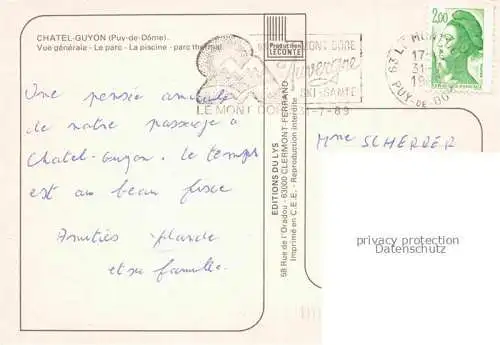 CHATEL-GUYON (Puy-de-Dôme).
Vue générale - Le parc - La piscine - parc thermal
Production
LECONTE
MONT DORE
Auvergne
SKI-SANTÉ
LE MONT DORE 31-7-89
2,00
63 LE MONT
17-
31-
19
PUY-DE-DO
Une pensée amicale
de notre passage à
Chatel-Guyon. le temps
est au beau fixe
Amitiés
et sa famille.
EDITIONS DU LYS
58 Rue de l'Oradou - 63000 CLERMONT-FERRAND
Imprimé en C.E.E. - Reproduction interdite
Mme SCHERDER
privacy protection
Datenschutz